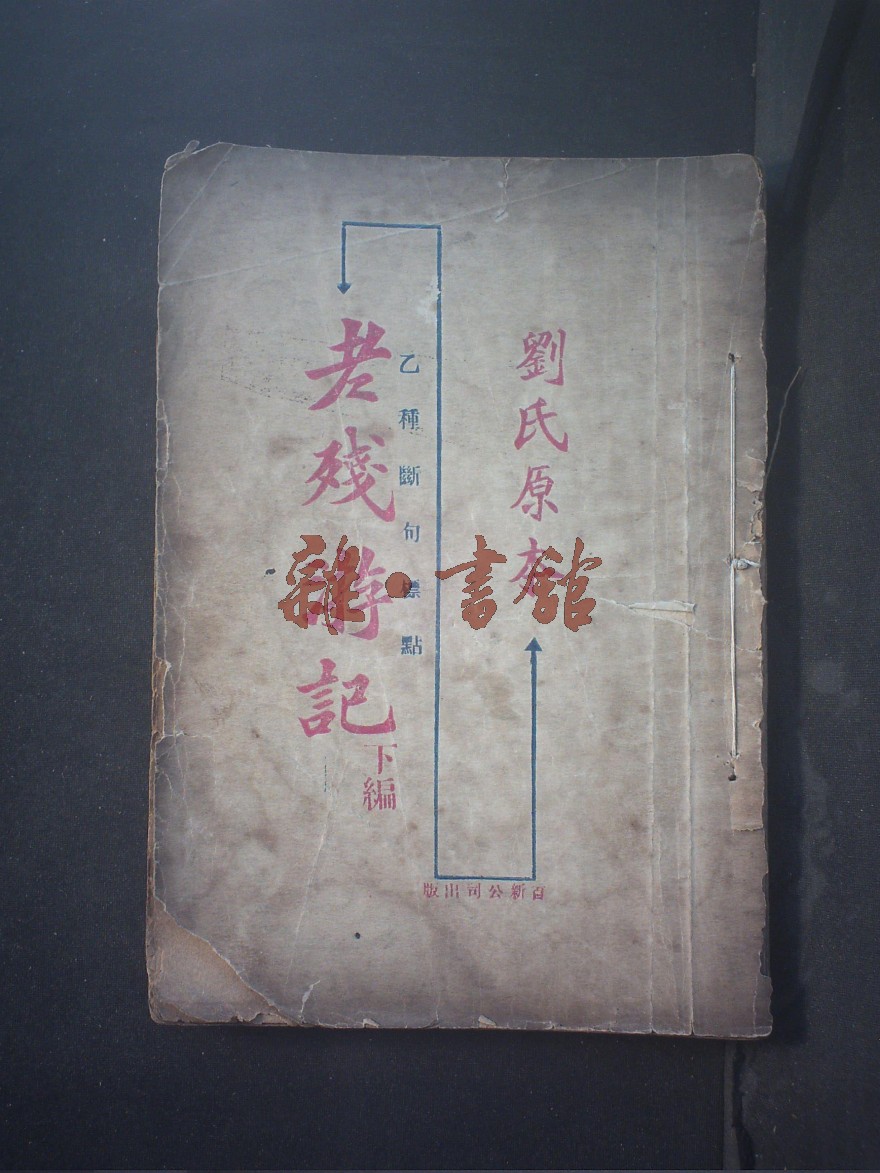 劉氏原本
乙種斷句標點
老殘游記
下編
百新公司出版
雜·書館